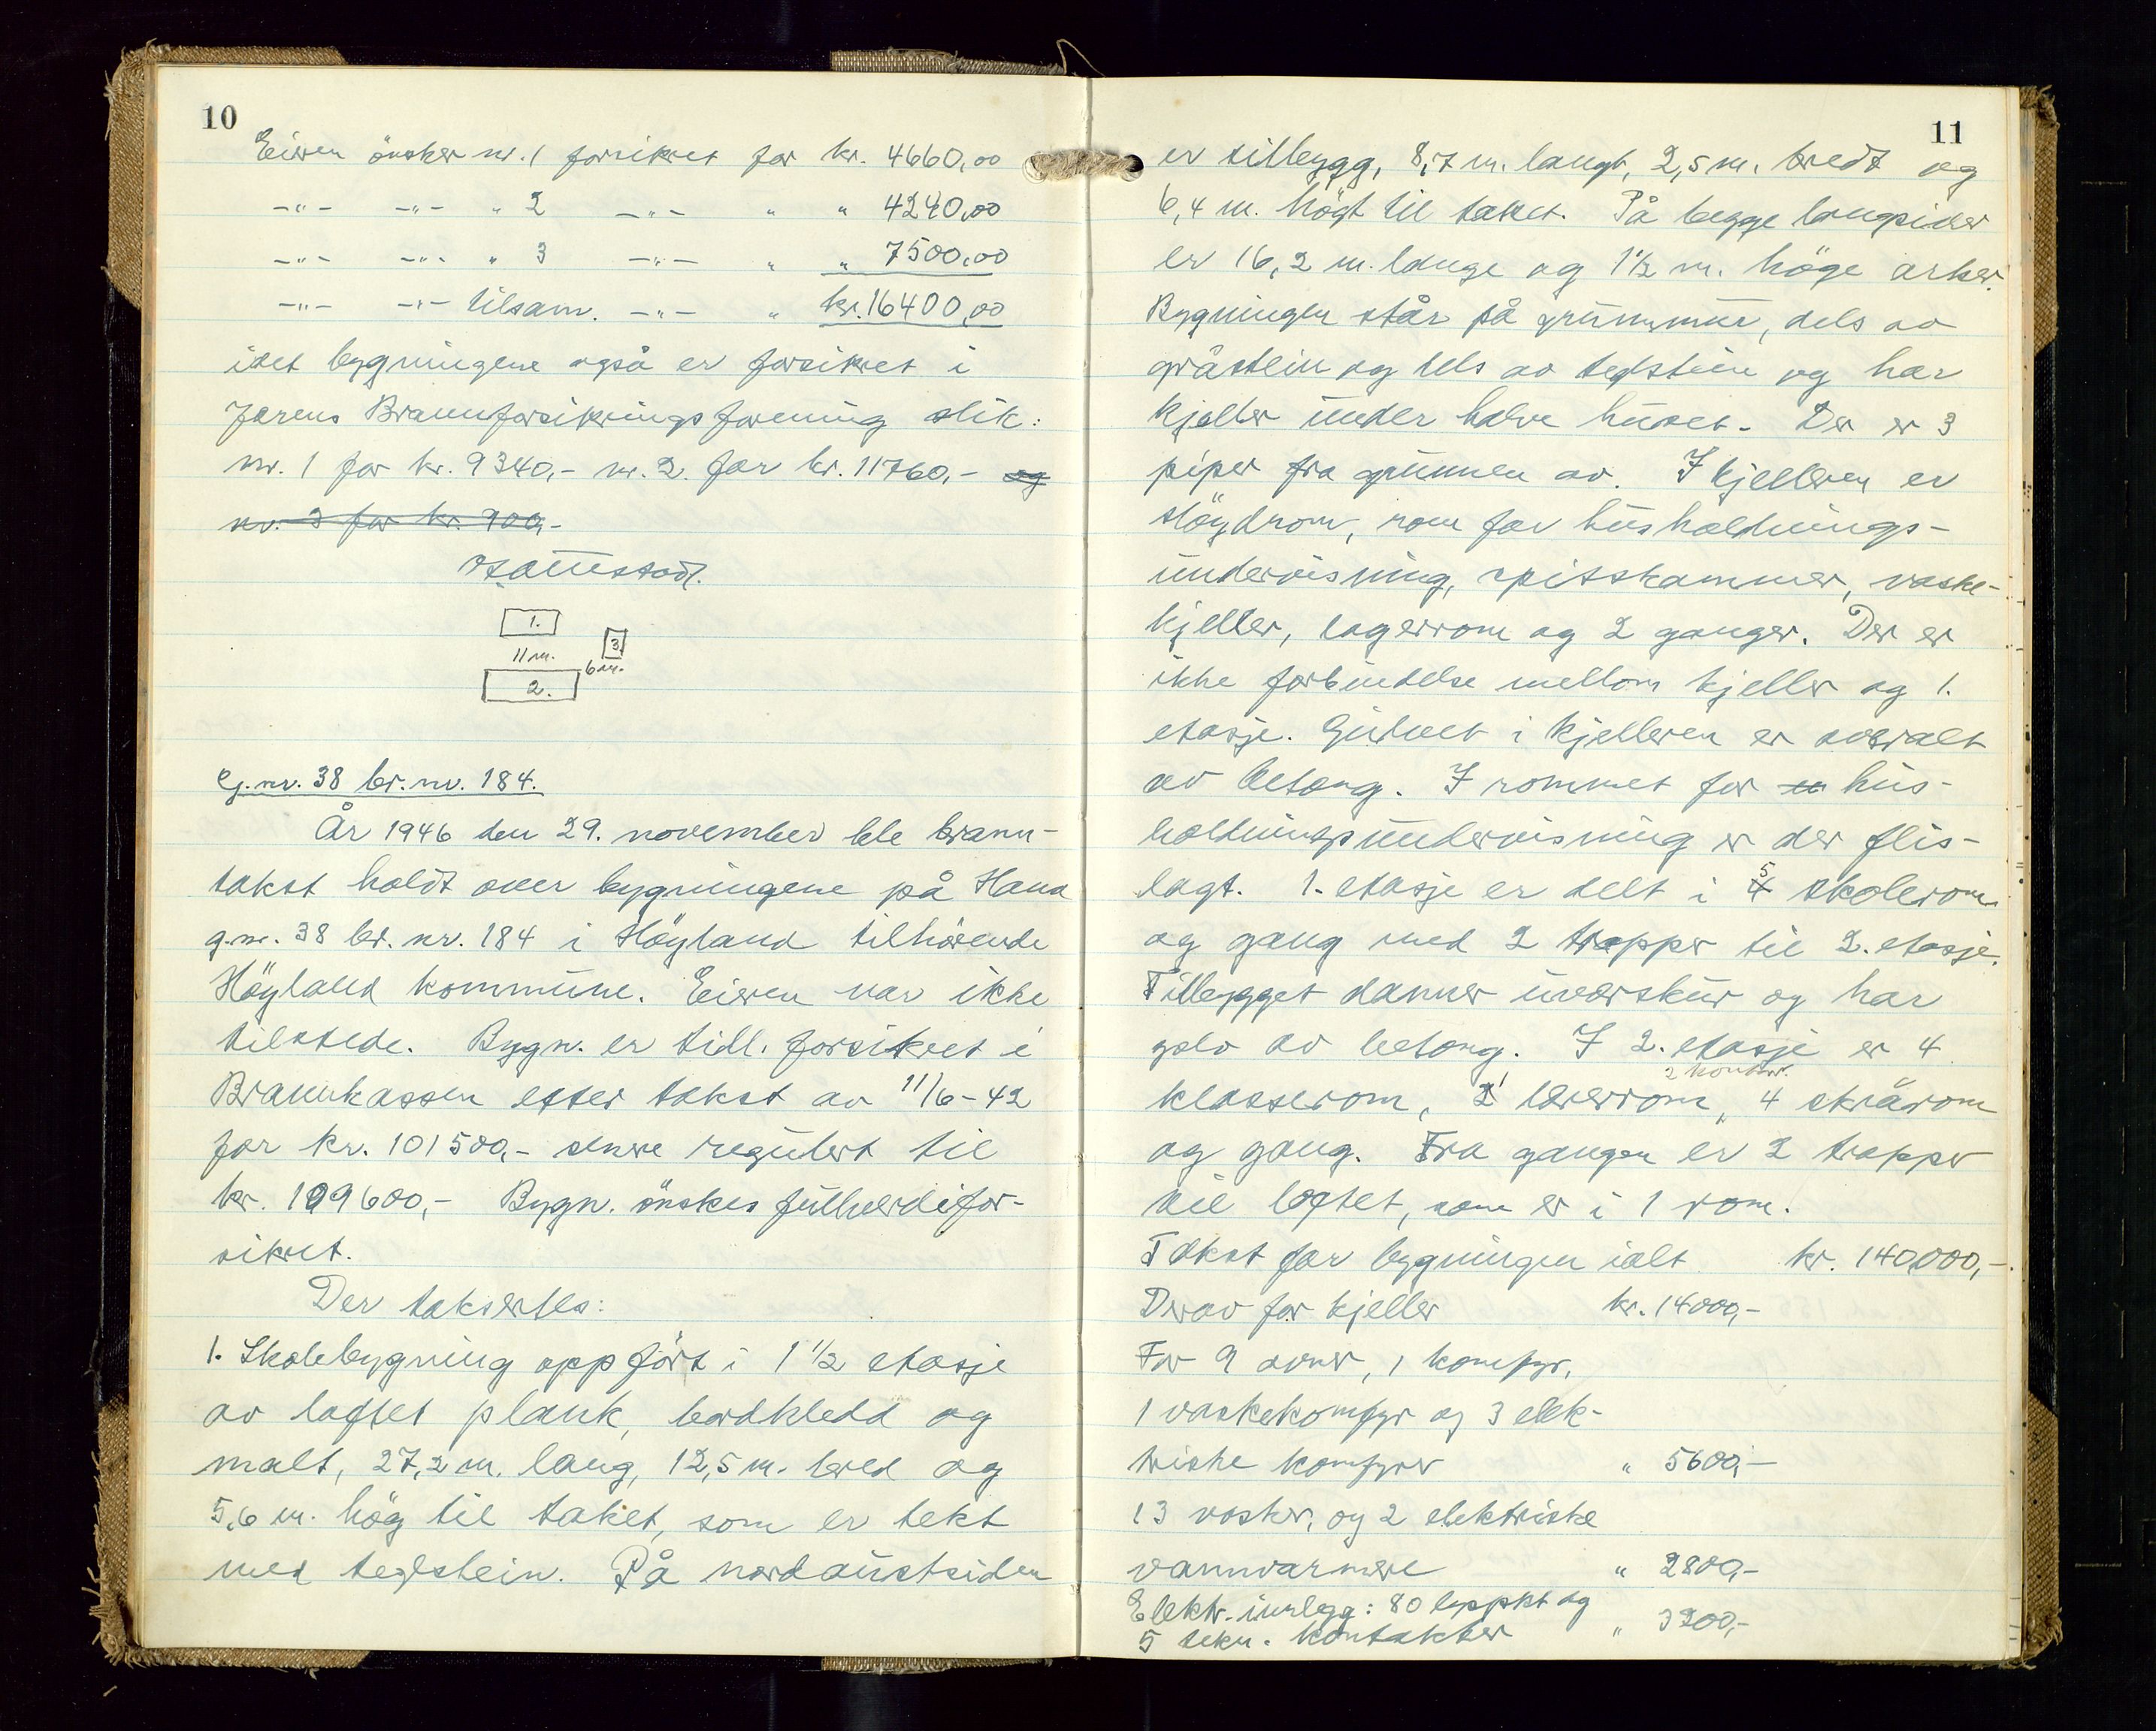 10
Eieren önsker nr. 1 forsikret for kr. 4660,00
-"- -"- " 2 -"- " " 4240,00
-"- -"- " 3 -"- " " 7500,00
-"- -"- tilsam. -"- " kr. 16400,00
idet bygningene også er forsikret i
Jærens Brannforsikringsforening slik:
nr. 1 for kr. 9340,- nr. 2. for kr. 11760,- og
nr. 3 for kr. 900,-
1.
11 m.
3
6 m.
2.
G.nr. 38 br.nr. 184.
År 1946 den 29. november ble brann-
takst holdt over bygningene på Hana
g.nr. 38 br. nr. 184 i Höyland tilhörende
Höyland kommune. Eieren var ikke
tilstede. Bygn. er tidl. forsikret i
Brannkassen etter takst av 11/6-42
for kr. 101500,- senere regulert til
kr. 109600,- Bygn. önskes fullverdifor-
sikret.
Der taksertes:
1. Skolebygning oppfört i 1 1/2 etasje
av laftet plank, bordkledd og
malt, 27,2 m. lang, 12,5 m. bred og
5,6 m. hög til taket, som er tekt
med teglstein. På nordaustsiden
11
er tilbygg, 8,7 m. langt, 2,5 m. bredt og
6,4 m. högt til taket. På begge langsider
er 16,2 m. lange og 1 1/2 m. höge arker.
Bygningen står på grunnmur, dels av
gråstein og dels av teglstein og har
kjeller under halve huset. Der er 3
piper fra grunnen av. I kjelleren er
slöydrom, rom for husholdnings-
undervisning, spisskammer, vaske-
kjeller, lagerrom og 2 ganger. Der er
ikke forbindelse mellom kjeller og 1.
etasje. Gulvet i kjelleren er overalt
av betong. I rommet for hus-
holdningsundervisning er der flis-
lagt. 1. etasje er delt i 4 5 skolerom
og gang med 2 trapper til 2. etasje.
Tilbygget danner uværskur og har
golv av betong. I 2. etasje er 4
2 kontor.
klasserom, 1 lærerrom, 4 skrårom
og gang. Fra gangen er 2 trapper
til loftet, som er i 1 rom.
Takst for bygningen ialt kr. 140000,-
Derav for kjeller kr. 14000,-
For 9 ovner, 1 komfyr,
1 vaskekomfyr og 3 elek-
triske komfyrer " 5600,-
13 vasker, og 2 elektriske
vannvarmere " 2800,-
Elektr. innlegg: 80 lyspkt og
5 tekn. kontakter " 3200,-